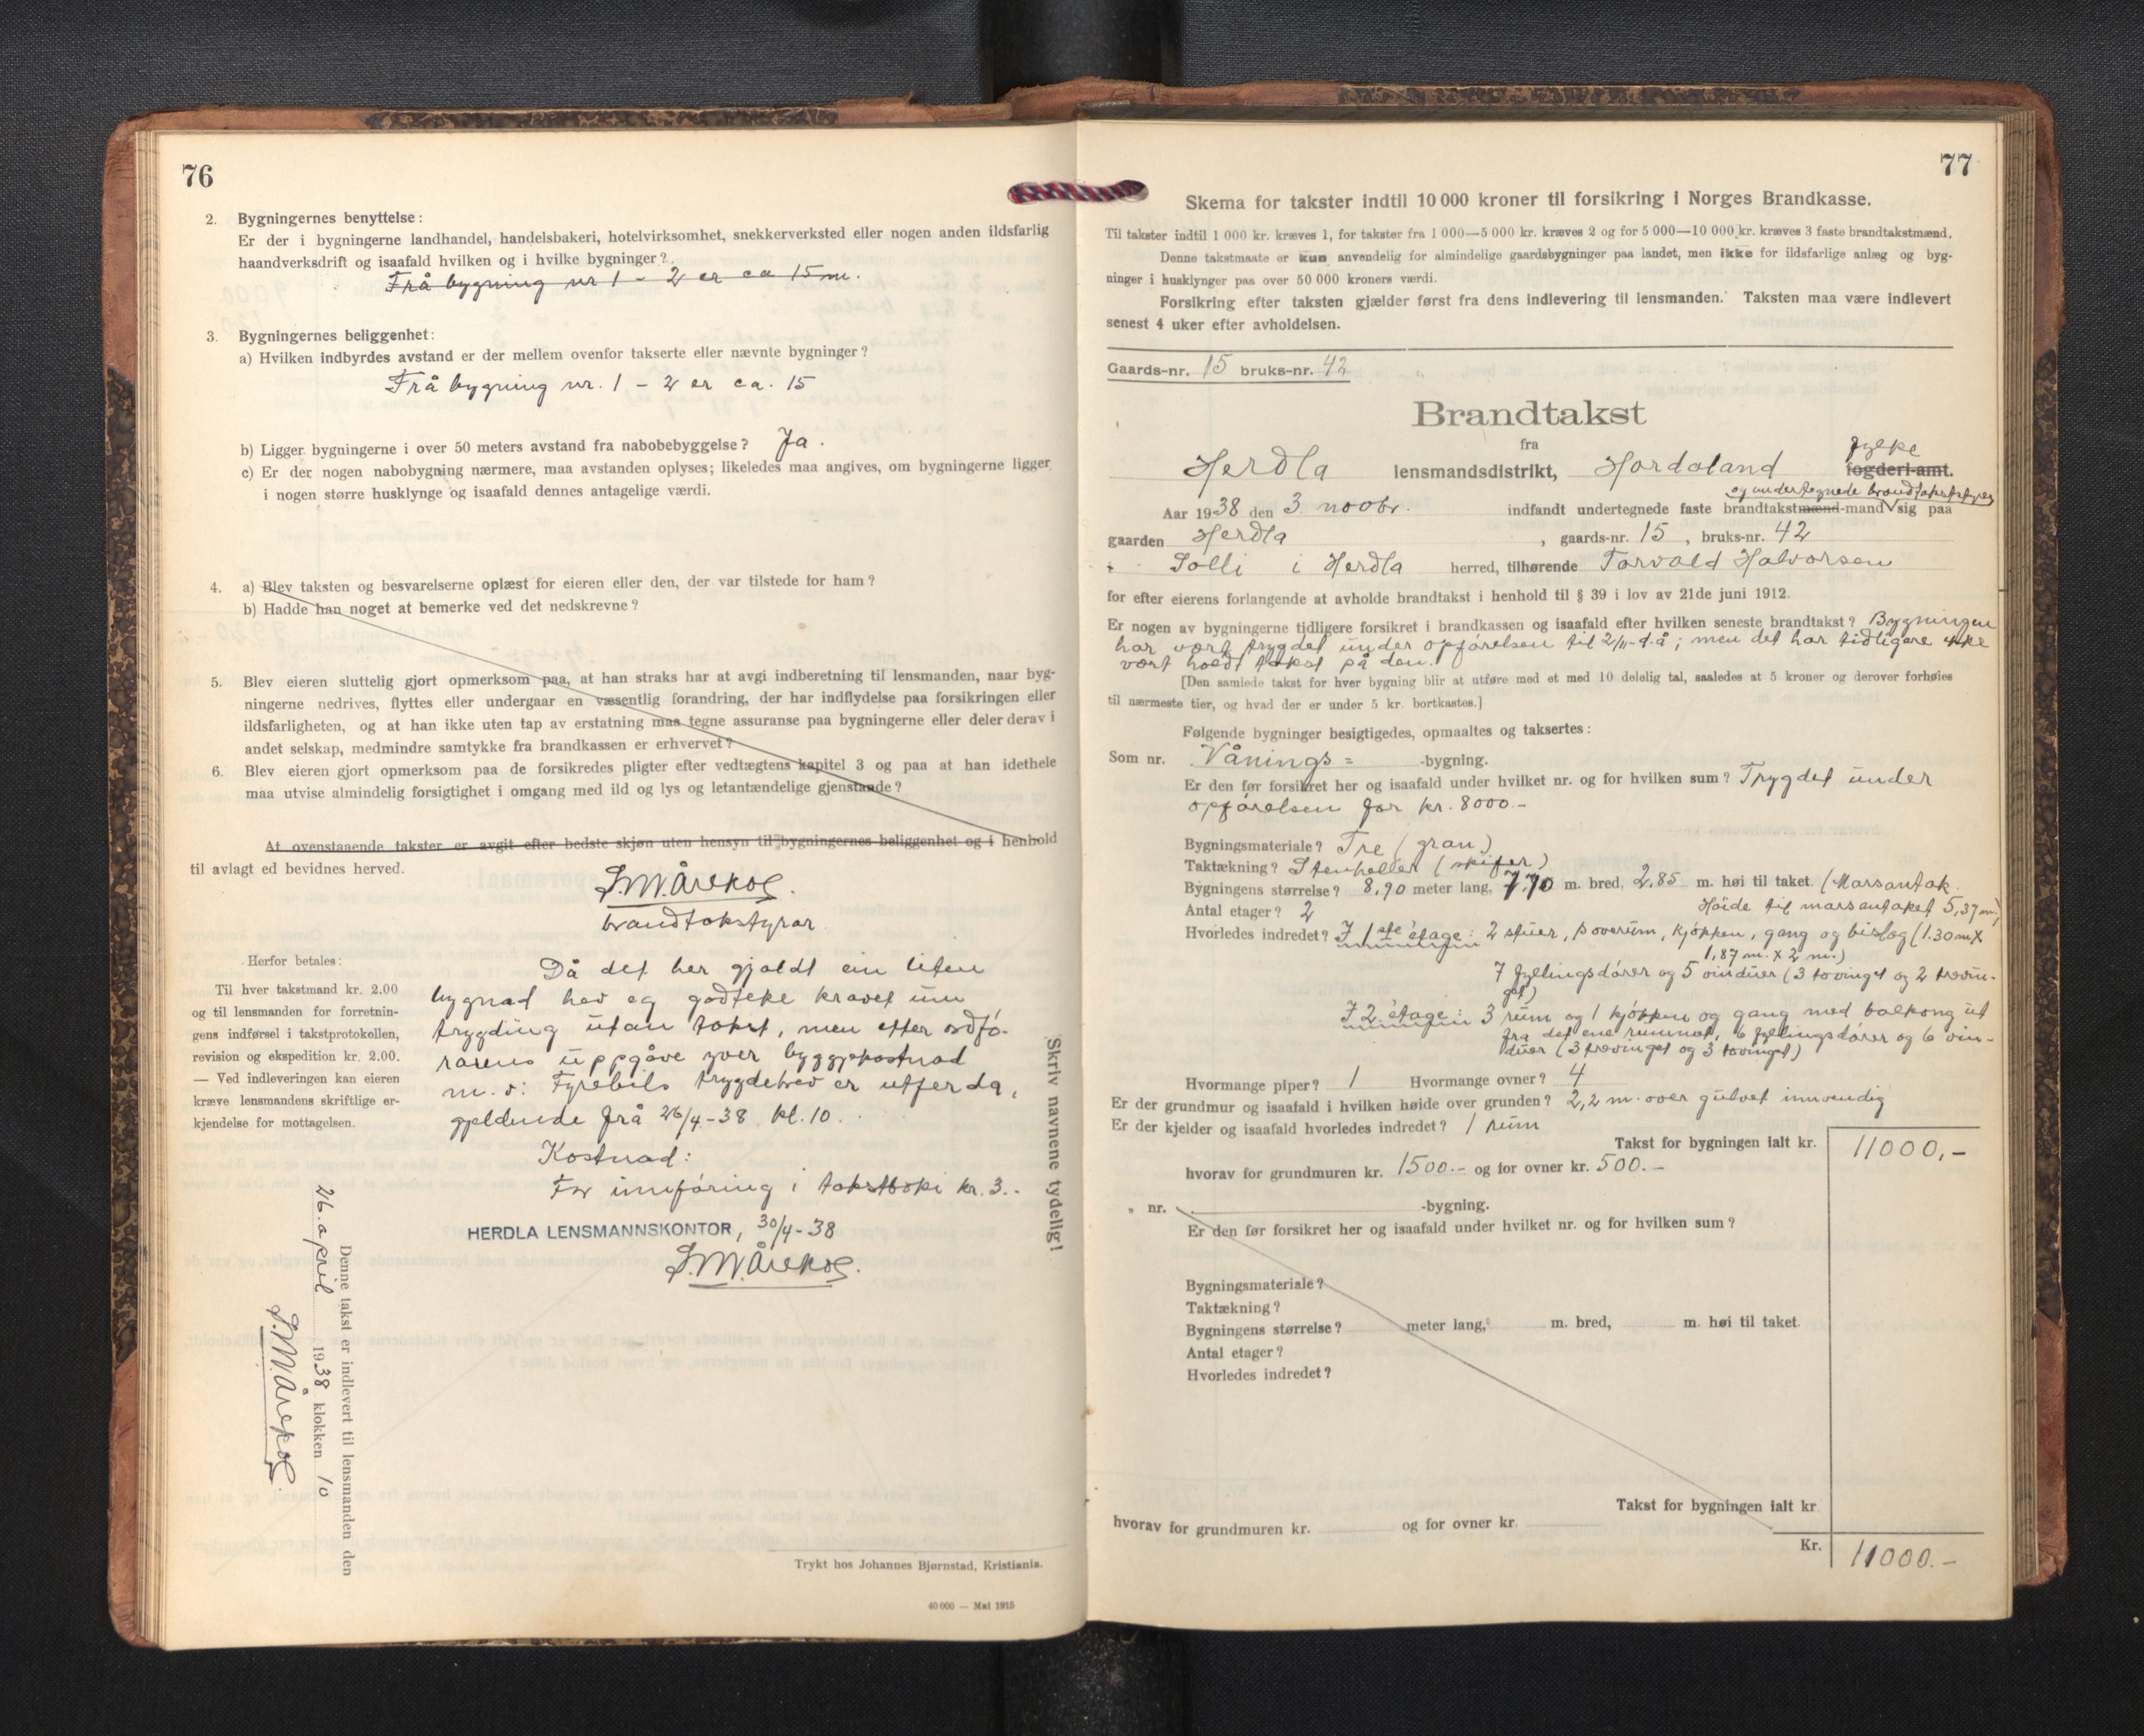 76
2. Bygningernes benyttelse:
Er der i bygningerne landhandel, handelsbakeri, hotelvirksomhet, snekkerverksted eller nogen anden ildsfarlig
haandverksdrift og isaafald hvilken og i hvilke bygninger?
Frå bygning nr 1 - 2 er ca 15 m.
3. Bygningernes beliggenhet:
a) Hvilken indbyrdes avstand er der mellem ovenfor takserte eller nævnte bygninger?
Frå bygning nr. 1 - 2 er ca. 15
b) Ligger bygningerne i over 50 meters avstand fra nabobebyggelse? Ja.
c) Er der nogen nabobygning nærmere, maa avstanden oplyses; likeledes maa angives, om bygningerne ligger
i nogen større husklynge og isaafald dennes antagelige værdi.
4. a) Blev taksten og besvarelserne oplæst for eieren eller den, der var tilstede for ham?
b) Hadde han noget at bemerke ved det nedskrevne?
5. Blev eieren sluttelig gjort opmerksom paa, at han straks har at avgi indberetning til lensmanden, naar byg-
ningerne nedrives, flyttes eller undergaar en væsentlig forandring, der har indflydelse paa forsikringen eller
ildsfarligheten, og at han ikke uten tap av erstatning maa tegne assuranse paa bygningerne eller deler derav i
andet selskap, medmindre samtykke fra brandkassen er erhvervet?
6. Blev eieren gjort opmerksom paa de forsikredes pligter efter vedtægtens kapitel 3 og paa at han idethele
maa utvise almindelig forsigtighet i omgang med ild og lys og letantændelige gjenstande?
At ovenstaaende takster er avgit efter bedste skjøn uten hensyn til bygningernes beliggenhet og i henhold
til avlagt ed bevidnes herved.
brandtakstyrar
Herfor betales:
Til hver takstmand kr. 2.00
og til lensmanden for forretnin-
gens indførsel i takstprotokollen,
revision og ekspedition kr. 2.00.
— Ved indleveringen kan eieren
kræve lensmandens skriftlige er-
kjendelse for mottagelsen.
Då det her gjeldt ein liten
bygnad hev eg godteke kravet um
trygding utan takst, men etter
rarens uppgåve yver byggjekostnad
m. v: Fyrebils trygdebrev er utferda,
gjeldende frå 26/4-38 kl. 10.
Kostnad:
For innføring i takstboki kr. 3.-
HERDLA LENSMANNSKONTOR, 30/4-38
Skriv navnene tydelig!
Denne takst er indlevert til lensmanden den
26. april 1938 klokken 10
Trykt hos Johannes Bjørnstad, Kristiania.
40 000 — Mai 1915
77
Skema for takster indtil 10 000 kroner til forsikring i Norges Brandkasse.
Til takster indtil 1 000 kr. kræves 1, for takster fra 1 000—5 000 kr. kræves 2 og for 5 000—10 000 kr. kræves 3 faste brandtakstmænd.
Denne takstmaate er kun anvendelig for almindelige gaardsbygninger paa landet, men ikke for ildsfarlige anlæg og byg-
ninger i husklynger paa over 50 000 kroners værdi.
Forsikring efter taksten gjælder først fra dens indlevering til lensmanden. Taksten maa være indlevert
senest 4 uker efter avholdelsen.
Gaards-nr. 15 bruks-nr. 42
Brandtakst
fra
Herdla lensmandsdistrikt, Hordaland fylke fogderi-amt.
og undertegnede brandtakststyrer
Aar 1938 den 3. novbr. indfandt undertegnede faste brandtakstmænd-mand sig paa
gaarden Herdla, gaards-nr. 15, bruks-nr. 42
Solli i Herdla herred, tilhørende Torvald Halvorsen
for efter eierens forlangende at avholde brandtakst i henhold til § 39 i lov av 21de juni 1912.
Er nogen av bygningerne tidligere forsikret i brandkassen og isaafald efter hvilken seneste brandtakst? Bygningen
har vært trygdet under opførelsen til 2/11-d.å; men det har tidligere ikke
vært holdt takst på den.
[Den samlede takst for hver bygning blir at utføre med et med 10 delelig tal, saaledes at 5 kroner og derover forhøies
til nærmeste tier, og hvad der er under 5 kr. bortkastes.]
Følgende bygninger besigtigedes, opmaaltes og taksertes:
Som nr. Vånings= -bygning.
Er den før forsikret her og isaafald under hvilket nr. og for hvilken sum? Trygdet under
opførelsen for kr. 8000.-
Bygningsmateriale? Tre (gran)
Taktækning? Stenheller (skifer)
Bygningens størrelse? 8,90 meter lang, 7,70 m. bred, 2,85 m. høi til taket. (Marsantak.
Antal etager? 2 Höide til marsantaket 5,37 m.)
Hvorledes indredet? I 1ste etage: 2 stuer, soverum, kjøkken, gang og bislag (1.30 m x
1,87 m. x 2 m.)
7 fyllingsdører og 5 vinduer (3 tovinget og 2 trevin-
get)
I 2. etage: 3 rum og 1 kjøkken og gang med balkong ut
fra det ene rummet, 6 fyllingsdører og 6 vin-
duer (3 trevinget og 3 tovinget)
Hvormange piper? 1 Hvormange ovner? 4
Er der grundmur og isaafald i hvilken høide over grunden? 2,2 m. over gulvet innvendig
Er der kjelder og isaafald hvorledes indredet? 1 rum
Takst for bygningen ialt kr. 11000,-
hvorav for grundmuren kr. 1500.- og for ovner kr. 500.-
" nr. -bygning.
Er den før forsikret her og isaafald under hvilket nr. og for hvilken sum?
Bygningsmateriale?
Taktækning?
Bygningens størrelse? meter lang, m. bred, m. høi til taket.
Antal etager?
Hvorledes indredet?
Takst for bygningen ialt kr
hvorav for grundmuren kr. og for ovner kr.
Kr. 11000.-